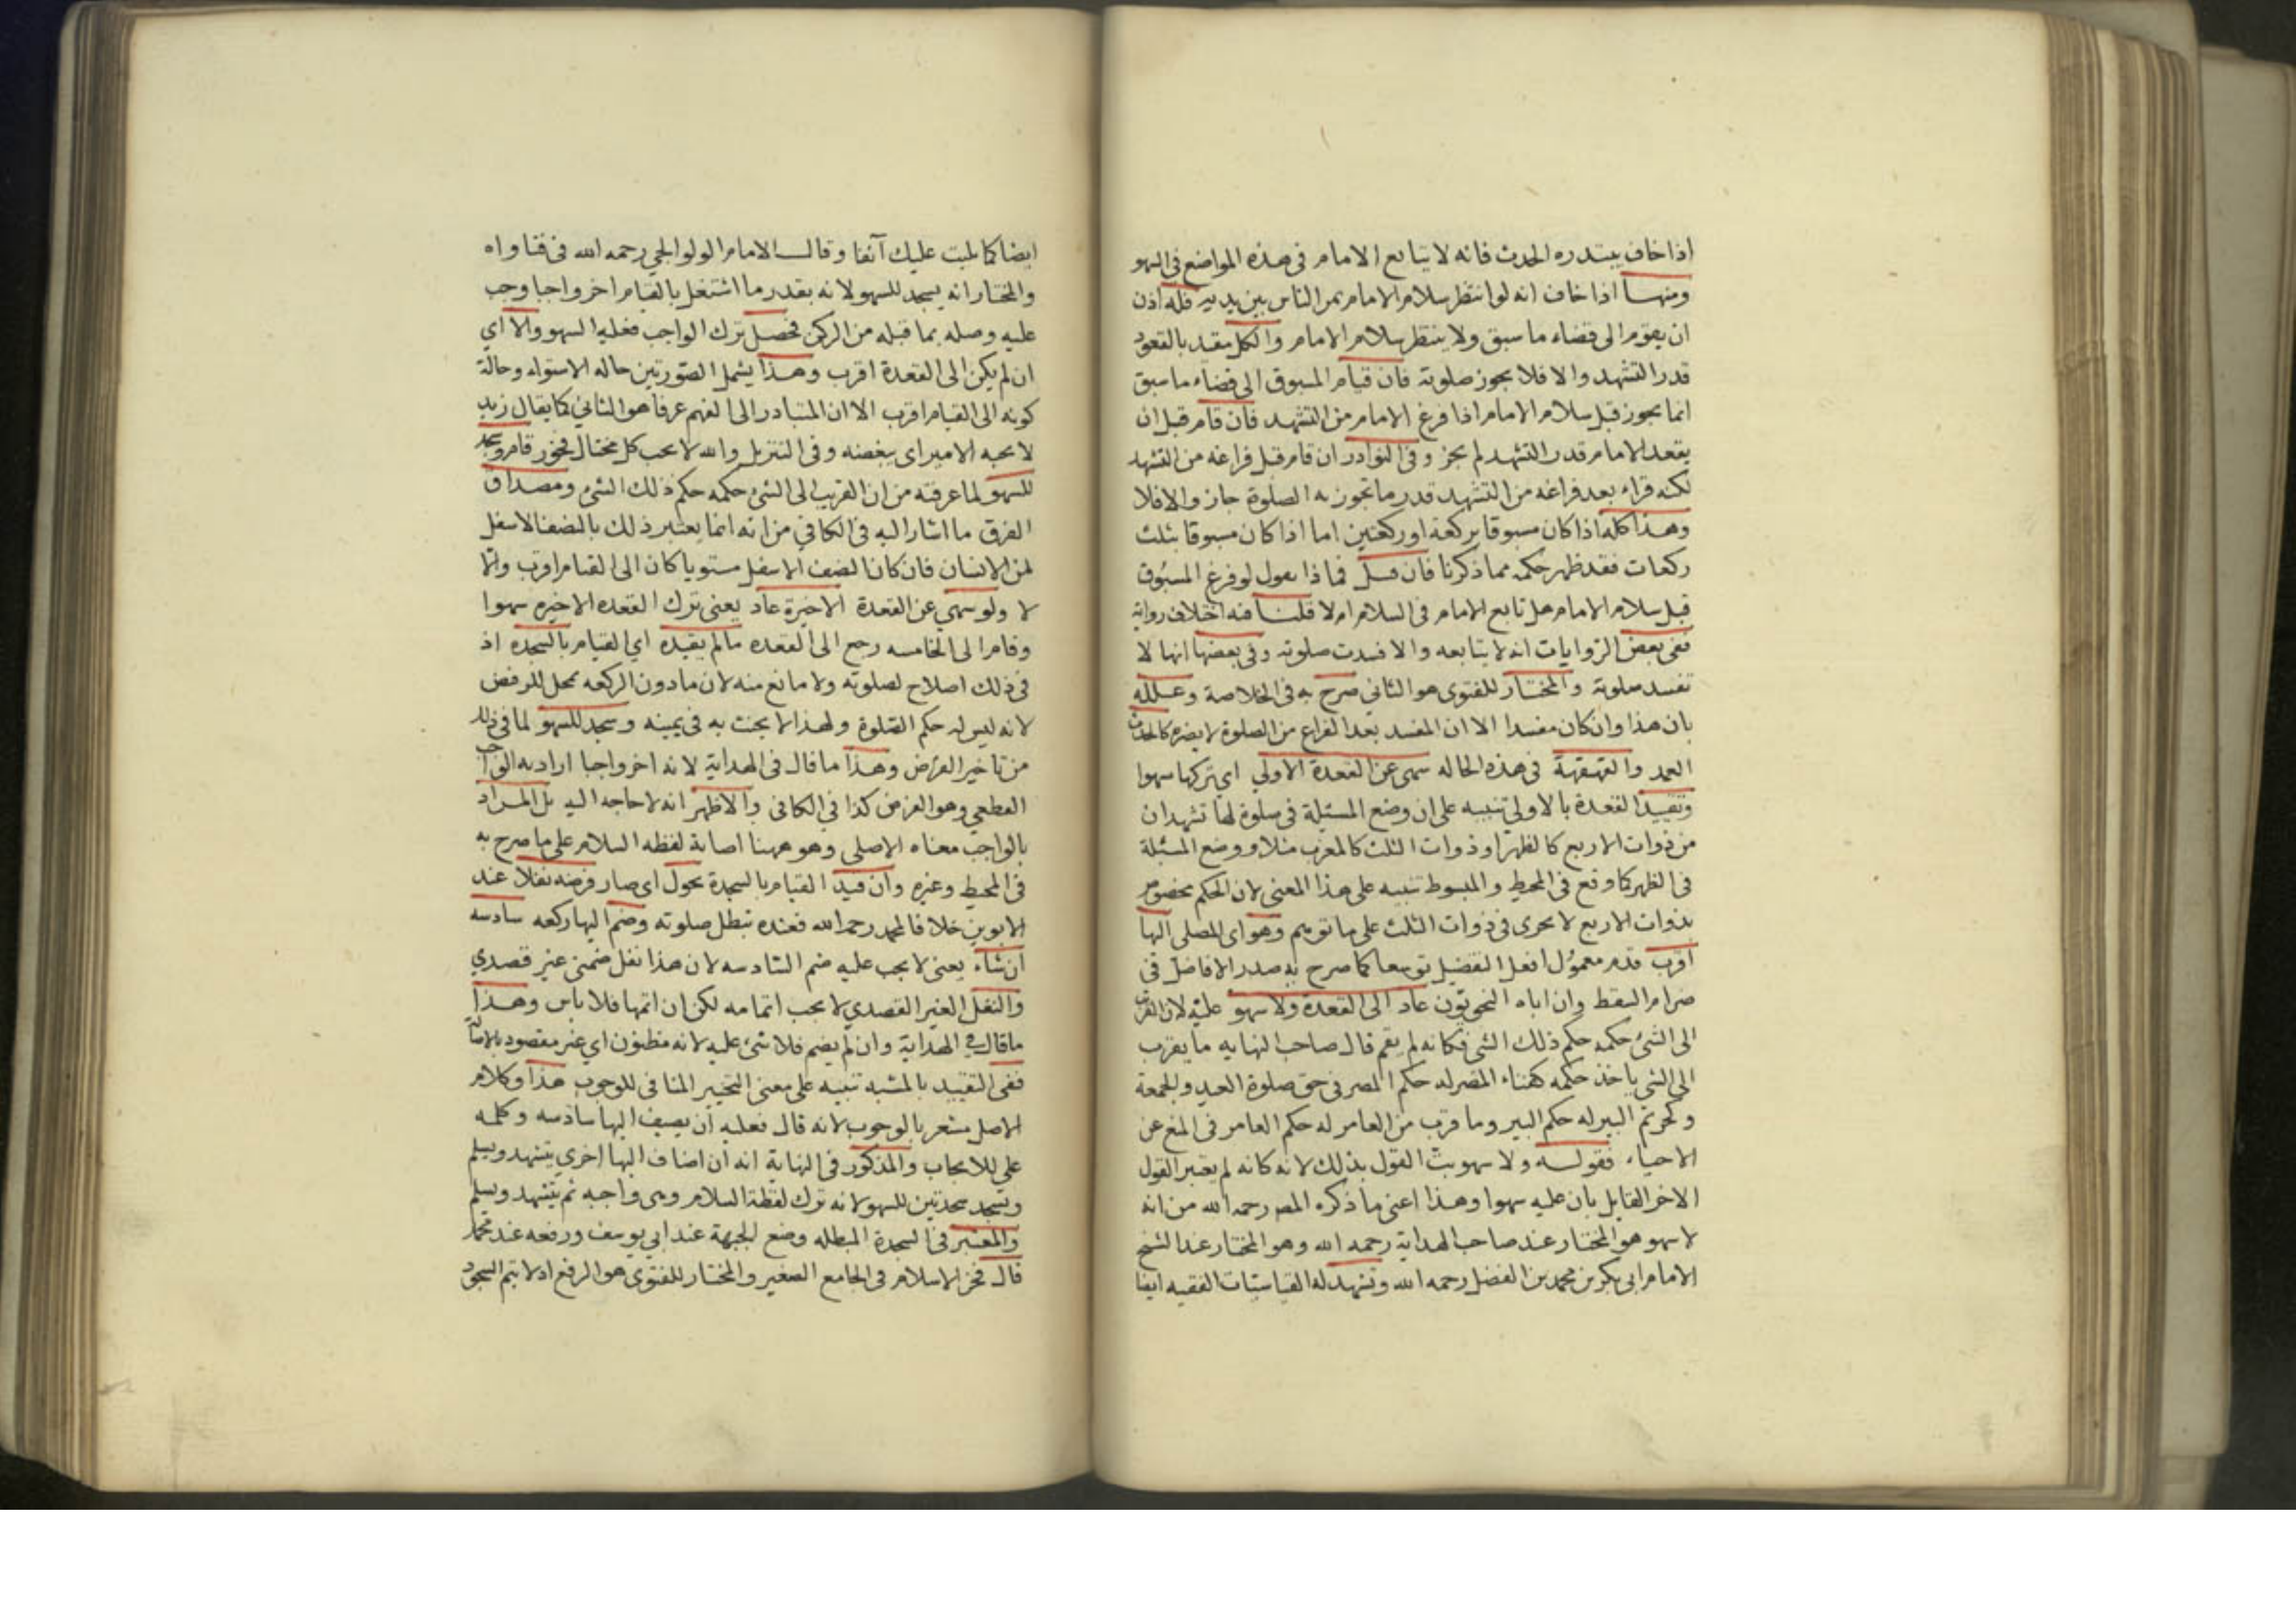 اذا خاف يبتدره الحدث فانه لا يتابع الامام في هذه المواضع في السهو
ومنها اذا خاف انه لو انتظر سلام الامام يمر الناس بين يديه فله اذن
ان يقوم الى قضاء ما سبق ولا ينتظر سلام الامام والكل مقيد بالقعود
قدر التشهد والا فلا يجوز صلوته فان قيام المسبوق الى قضاء ما سبق
انما يجوز قبل سلام الامام اذا فرغ الامام من التشهد فان قام قبل ان
يقعد الامام قدر التشهد لم يجز وفي النوادر ان قام قبل فراغه من التشهد
لكنه قراء بعد فراغه من التشهد قدر ما تجوز به الصلوة جاز والا فلا
وهذا كله اذا كان مسبوقا بركعة او ركعتين اما اذا كان مسبوقا بثلث
ركعات فقد ظهر حكمه مما ذكرنا فان قيل فماذا يقول لو فرغ المسبوق
قبل سلام الامام هل تابع الامام في السلام ام لا قلنا فيه اختلاف رواية
ففي بعض الروايات انه لا يتابعه والا فسدت صلوته وفي بعضها انها لا
تفسد صلوته والمختار للفتوى هو الثاني صرح به في الخلاصة وعلله
بان هذا وان كان مفسدا الا ان المفسد بعد الفراغ من الصلوة لا يضره كالحدث
العمد والقهقهة في هذه الحاله سهى عن القعدة الاولي اي تركها سهوا
وتقييد القعدة بالاولى تنبيه على ان وضع المسئلة في صلوة لها تشهدان
من ذوات الاربع كالظهر او ذوات الثلث كالمغرب مثلا ووضع المسئلة
في الظهر كما وقع في المحيط والمبسوط تنبيه على هذا المعنى لان الحكم مخصوص
بذوات الاربع لا يجرى في ذوات الثلث على ما توهم وهو اى المصلى اليها
اقرب قدم معمول افعل التفضيل توسعا كما صرح به صدر الافاضل في
ضرام السقط وان اباه النحويون عاد الى القعدة ولا سهو عليه لان القرب
الى الشئ حكمه حكم ذلك الشئ فكانه لم يقم قال صاحب النهايه ما يقرب
الى الشئ ياخذ حكمه كفناء المصر له حكم المصر في حق صلوة العيد والجمعة
وكحريم البير له حكم البير وما قرب من العامر له حكم العامر في المنع عن
الاحياء فقوله ولا سهو بت القول بذلك لانه كانه لم يعتبر القول
الاخر القايل بان عليه سهوا وهذا اعني ما ذكره المص رحمه الله من انه
لا سهو هو المختار عند صاحب الهداية رحمه الله وهو المختار عند الشيخ
الامام ابى بكر بن محمد بن الفضل رحمه الله وتشهد له القياسيات الفقيه ايضا
ايضا كما تليت عليك آنفا وقال الامام الولوالجي رحمه الله في فتاواه
والمختار انه يسجد للسهو لانه بقدر ما اشتغل بالقيام اخر واجبا وجب
عليه وصله بما قبله من الركن فحصل ترك الواجب فعليه السهو والا اي
ان لم يكن الى القعدة اقرب وهذا يشمل الصورتين حاله الاستواء وحالة
كونه الى القيام اقرب الا ان المتبادر الى الفهم عرفا هو الثاني كما يقال زيد
لا يحبه الامير اى يبغضه وفي التنزيل والله لا يحب كل مختال فخور قام وسجد
للسهو لما عرفته من ان القريب الى الشئ حكمه حكم ذلك الشئ ومصداق
الفرق ما اشار اليه في الكافي من انه انما يعتبر ذلك بالنصف الاسفل
من الانسان فان كان النصف الاسفل مستويا كان الى القيام اقرب والا
لا ولو سهى عن القعدة الاخيرة عاد يعني ترك القعده الاخيره سهوا
وقام الى الخامسه رجع الى القعده ما لم يقيده اي القيام بالسجده اذ
في ذلك اصلاح لصلوته ولا مانع منه لان ما دون الركعه محل للرفض
لانه ليس له حكم الصلوة ولهذا لا يحنث به في يمينه وسجد للسهو لما في ذلك
من تاخير الفرض وهذا ما قال في الهداية لانه اخر واجبا اراد به الواجب
القطعي وهو الفرض كذا في الكافي والاظهر انه لا حاجه اليه بل المراد
بالواجب معناه الاصلى وهو ههنا اصابة لفظه السلام على ما صرح به
في المحيط وغيره وان قيد القيام بالسجدة يحول اى صار فرضه نفلا عند
الابوين خلافا لمحمد رحمه الله فعنده تبطل صلوته وضم اليها ركعه سادسه
ان شاء يعني لا يجب عليه ضم السادسه لان هذا نفل ضمنى غير قصدي
والنفل الغير القصدي لا يجب اتمامه لكن ان اتمها فلا باس وهذا
ما قال في الهداية وان لم يضم فلا شئ عليه لانه مظنون اي غير مقصود بالاصالة
ففي التقييد بالمشبه تنبيه على معنى التخيير المنافي للوجوب هذا وكلام
الاصل مشعر بالوجوب لانه قال فعليه ان يضيف اليها سادسه وكلمه
على للايجاب والمذكور في النهاية انه ان اضاف اليها اخرى يتشهد ويسلم
ويسجد سجدتين للسهو لانه ترك لفظة السلام وهى واجبه ثم يتشهد ويسلم
والمعتبر في السجدة المبطله وضع الجبهة عند ابي يوسف ورفعه عند محمد
قال فخر الاسلام في الجامع الصغير والمختار للفتوى هو الرفع اذ لا يتم السجود